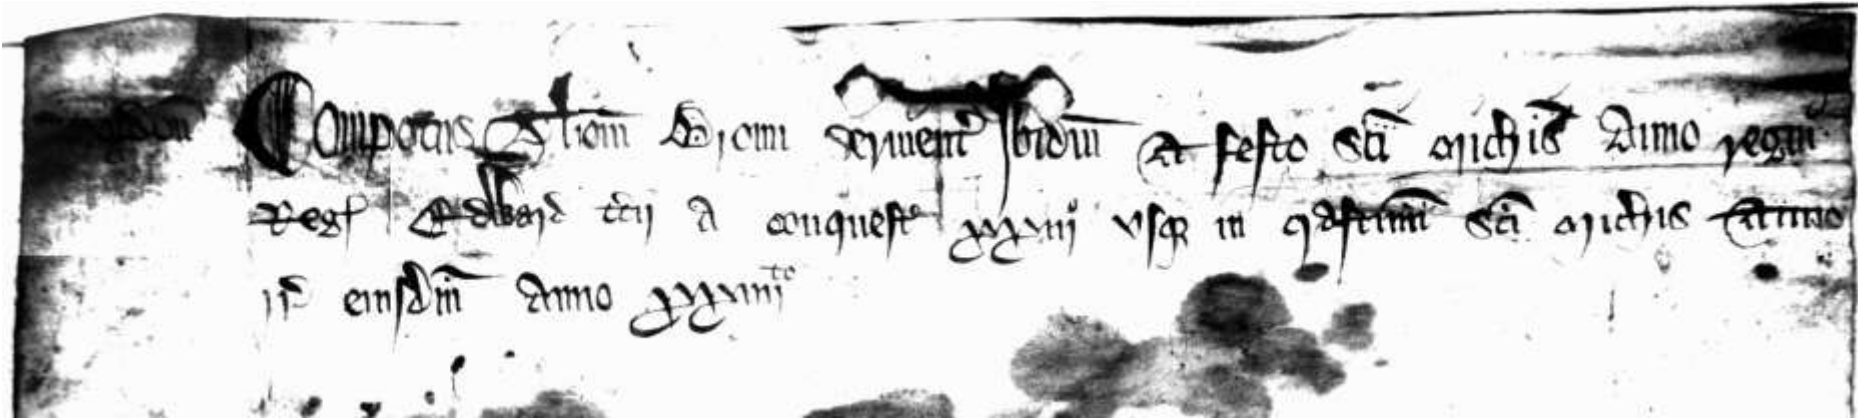 Compotus Thom Broun servient Ibidm A festo Sci Michis Anno regni
Reg Edward tcii a conquest xxxiij usq in Crastinu Sci Michis Anno
r eiusdm Anno xxxiiij to